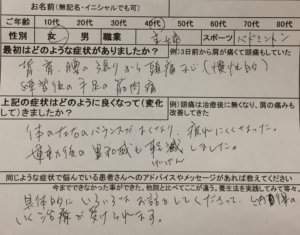 お名前(無記名・イニシャルでも可)
ご年齢 10代 20代 30代 40代 50代 60代 70代
性別 女 男 職業 主婦 スポーツ バドミントン
最初はどのような症状がありましたか? 例)3日前から肩が痛くて頭痛もしていた
背、肩、腰の張りから頭痛など(慢性的)
練習後の手足の筋肉痛
上記の症状はどのように良くなって(変化して)きましたか? 例)頭痛は治療後に無くなり、肩の痛みも改善してきた
体の左右のバランスがよくなり、疲れにくくなった。
運動後の異和感も軽減しました。
けいげん
同じような症状で悩んでいる患者さんへのアドバイスやメッセージがあれば教えてください
今までできなかった事ができた、他院と比べてここが違う、養生法を実践してみて等々。
具体的にいろいろなお話をしてくださって、納得の
いく治療が受けられます。